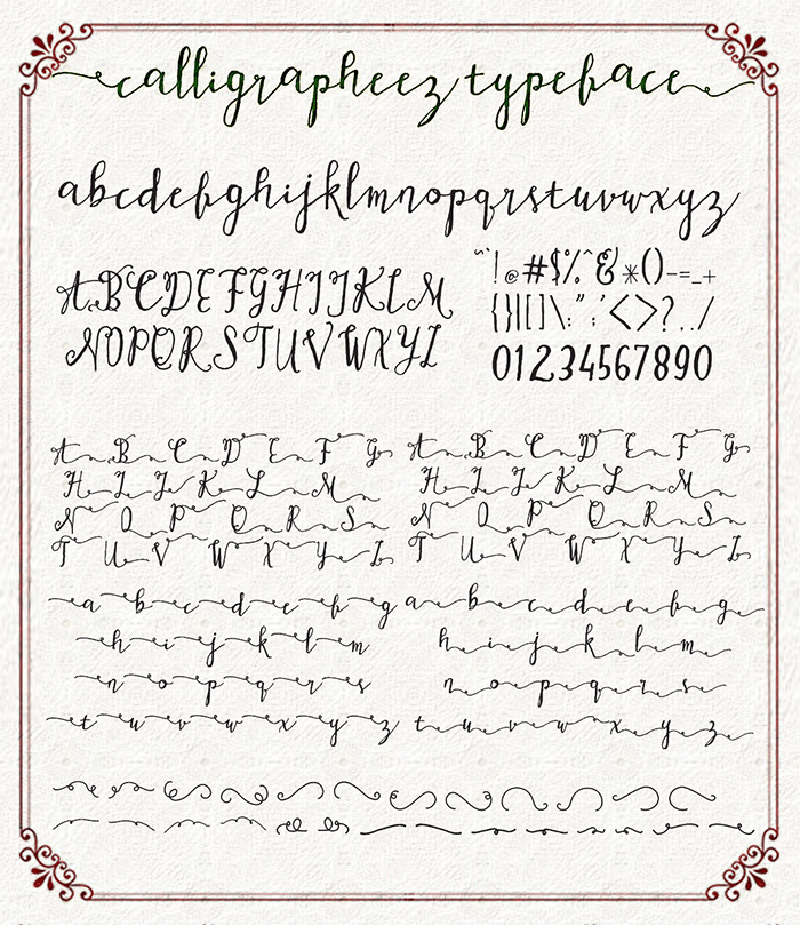 calligrapheez typeface
abcdefghijklmnopqrstuvwxyz
ABCDEFGHIJKLM
NOPQRSTUVWXYZ
~`!@#$%^&*()-=_+
{}|[]\:";'<>?,./
01234567890
A B C D E F G A B C D E F G
H I J K L M H I J K L M
N O P Q R S N O P Q R S
T U V W X Y Z T U V W X Y Z
a b c d e f g a b c d e f g
h i j k l m h i j k l m
n o p q r s n o p q r s
t u v w x y z t u v w x y z